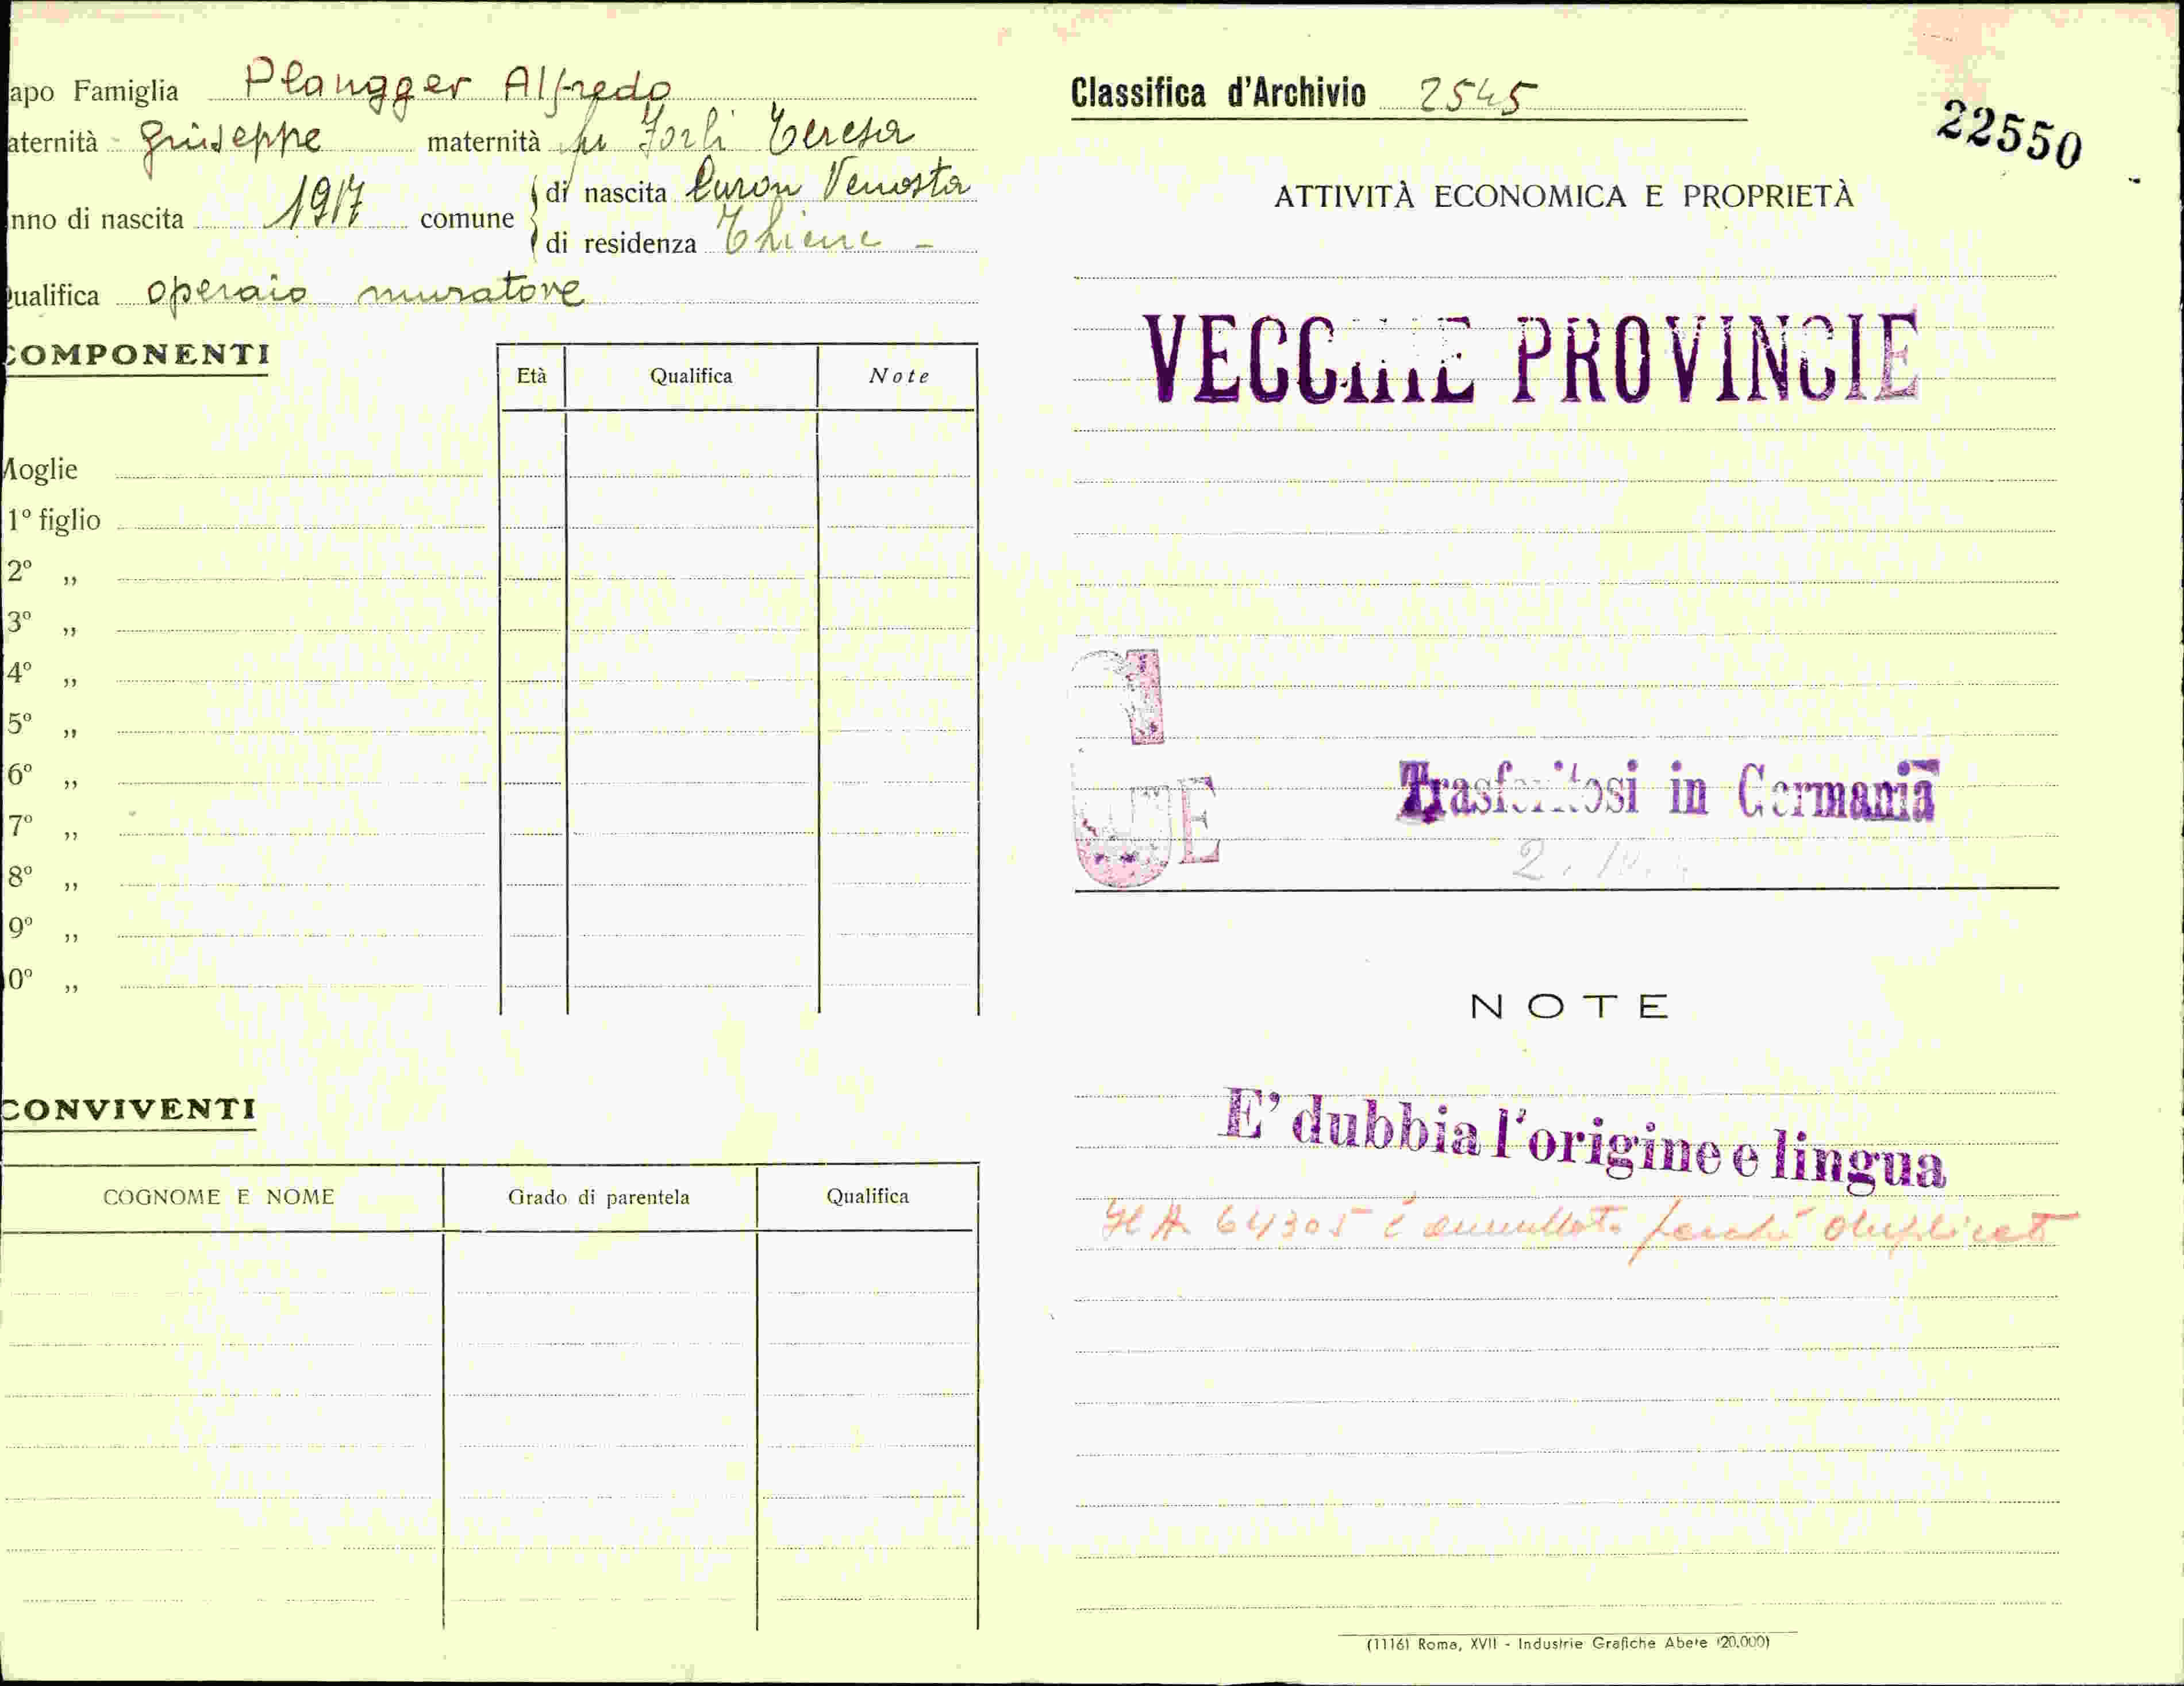 apo Famiglia Plangger Alfredo
aternità Giuseppe maternità fu Forli Teresa
nno di nascita 1917 comune di nascita Curon Venosta
di residenza Thiene -
ualifica operaio muratore
COMPONENTI
Età Qualifica Note
Moglie
1º figlio
2º „
3º „
4º „
5º „
6º „
7º „
8º „
9º „
0º „
CONVIVENTI
COGNOME E NOME Grado di parentela Qualifica
Classifica d'Archivio 2545
22550
ATTIVITÀ ECONOMICA E PROPRIETÀ
VECCHIE PROVINCIE
Trasferitosi in Germania
NOTE
E' dubbia l'origine e lingua
64305 è annullato perché duplicato
(1116) Roma, XVII - Industrie Grafiche Abete (20.000)